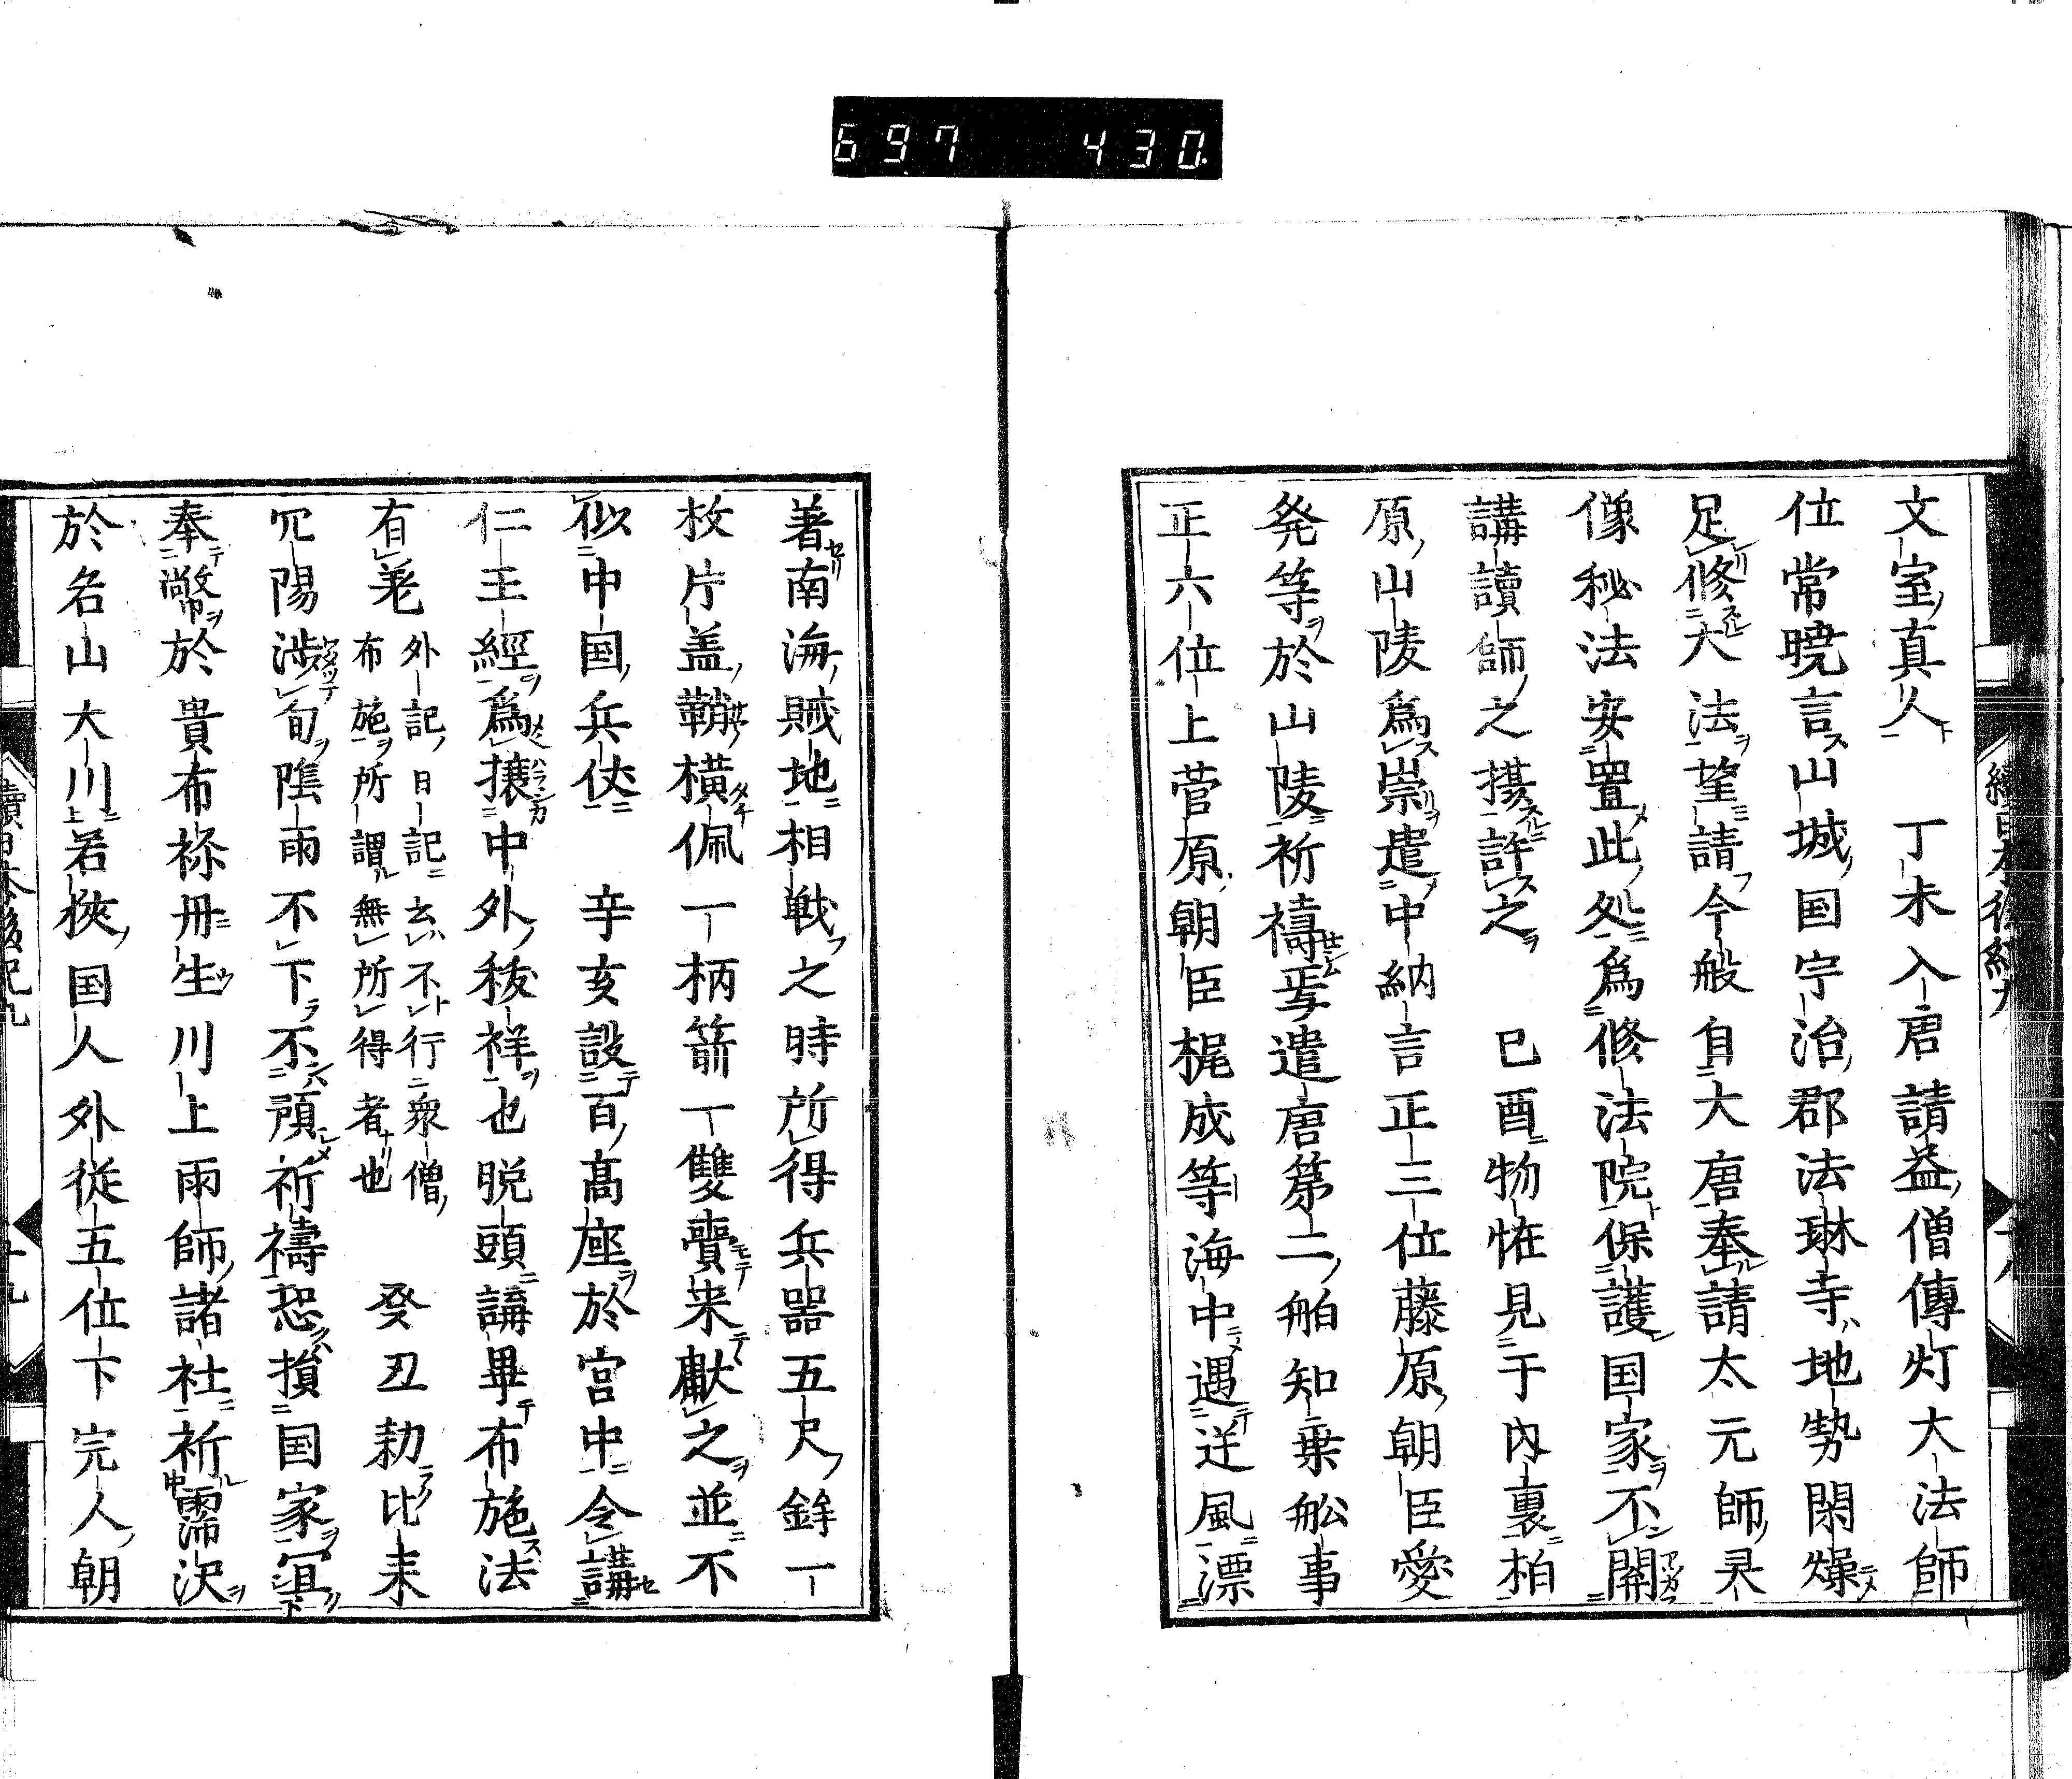 697 430
文室真人 丁未入唐請益僧傳灯大法師
位常曉言山城国宇治郡法琳寺地勢閑燥
足修大法望請今般自大唐奉請太元師㚑
像秘法安置此処為修法院保護国家不開
講讀師之揚許之 已酉物恠見于內裏柏
原山陵爲崇遣中納言正三位藤原朝臣愛
発等於山陵祈禱焉遣唐第二舶知乗舩事
正六位上菅原朝臣梶成等海中遇逆風漂
著南海賊地相戦之時所得兵器五尺鉾一
枚片盖鞘横佩一柄箭一雙賷来献之並不
似中国兵仗 辛亥設百高座於宮中令講
仁王經爲攘中外秡祥也脱頭講畢布施法
有差 外記日記云不行衆僧
布施所謂無所得者也 癸丑勅比来
冗陽渉旬陰雨不下不預祈禱恐損国家冝
奉幣於貴布祢丹生川上雨師諸社祈霈沢
於名山大川若狹国人外従五位下完人朝